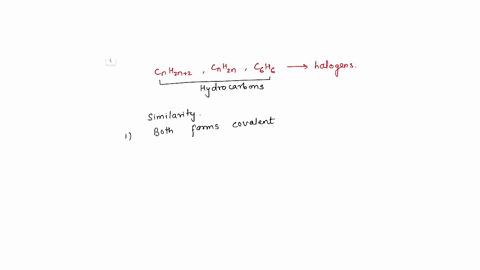 CnH2n+2 , CnH2n , C6H6 → halogens.
Hydrocarbons
Similarity.
1) Both forms covalent